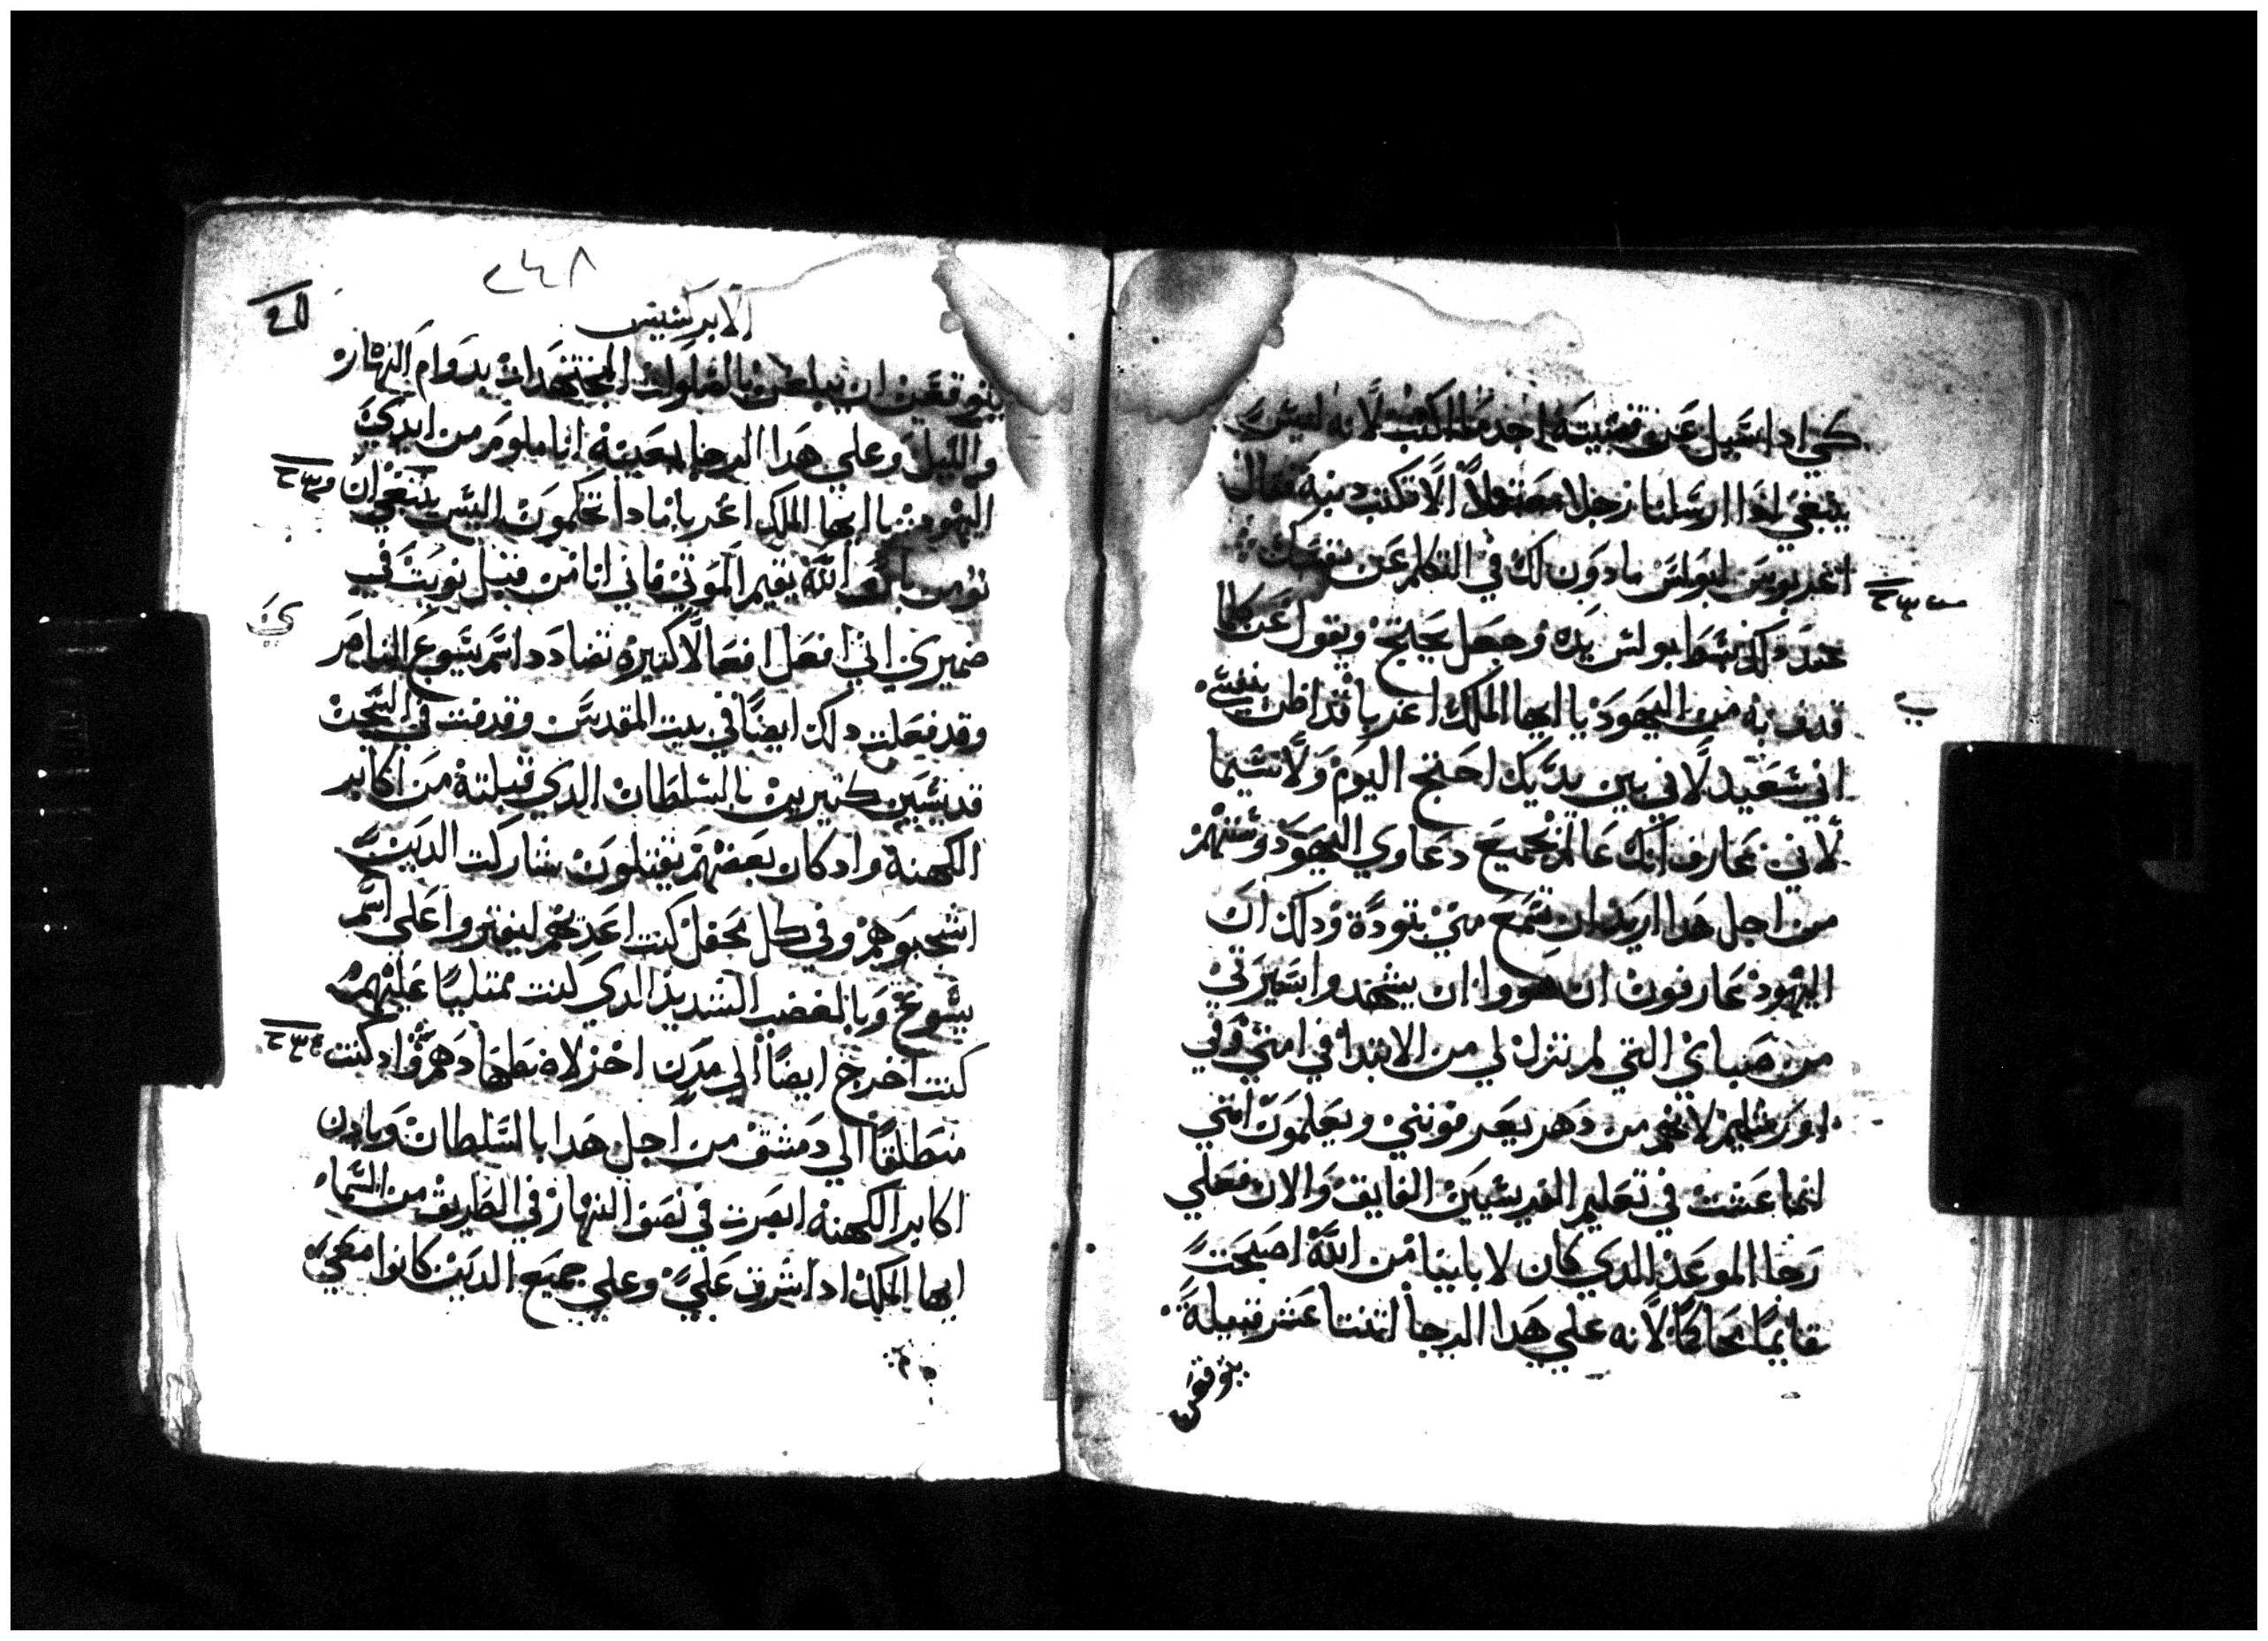 كي ادا سيل عن قضيته اجد ما اكتب لانه ليس
ينبغي اذا ارسلنا رجلا معتقولاً الا تكتب دنبه فقال
اغربوس لبولس مادون لك في التكلم عن نفسك
عند دلك بسط بولس يده وجعل يحتج ويقول عن كلما
قدف به من اليهود يا ايها الملك اغريبا قد اظن بنفسي
اني سعيد لاني بين يديك احتج اليوم ولا سيما
لاني عارف انك عالم بجميع دعاوي اليهود وسننهم
من اجل هدا اريد ان تسمع مني بتودة ودلك ان
اليهود عارفون ان هووا ان يشهدوا بسيرتي
من صباي التي لم تزل لي من الابتدا في امتي وفي
اورشليم لانهم من دهر يعرفونني ويعلمون انني
انما عشت في تعليم الفريسيين الفايق والان فعلي
رجا الموعد الدي كان لابايينا من الله اصبحت
قايمًا محاكمًا لانه علي هدا الرجا اتنتا عشر قبيلة
يتوقعن
٢٤٨
الابركسيس
يتوقعن ان يبلغن بالصلوات المجتهدات بدوام النهار
والليل وعلي هدا الرجا بعينه انا ملوم من ايدي
اليهود يا ايها الملك اغريبا مادا تحكمون اليس ينبغي ان
نومن بان الله يقيم الموتي فاني انا من قبل نويت في
ضميري اني افعل افعالا كتيره تضادد اسم يسوع الناصر
وقد فعلت دلك ايضًا في بيت المقدس وقدفت في السجن
قديسين كتيرين بالسلطان الدي قبلته من اكابر
الكهنة واد كان بعضهم يقتلون شاركت الدين
اشجبوهم وفي كل محفل كنت اعدبهم ليفتروا علي اسم
يسوع وبالغضب الشديد الدي كنت ممتليًا عليهم
كنت اخرج ايضًا الي مدن اخر لاضطهادهم واد كنت
منطلقًا الي دمشق من اجل هدا بالسلطان وبادن
اكابر الكهنه ابصرت في نصف النهار في الطريق من السما
ايها الملك اد اشرق علي وعلي جميع الدين كانوا معي